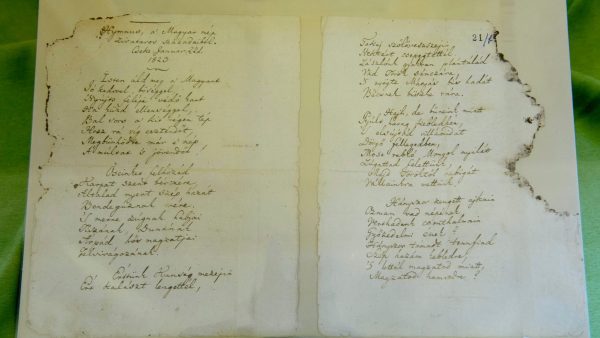 Hymnus, a' Magyar nép
zivataros századaiból.
Cseke Januar. 22d.
1823
Isten áld meg a' Magyart
Jó kedvvel, bőséggel,
Nyújts feléje védő kart
Ha küzd ellenséggel;
Bal sors a' kit régen tép
Hozz rá víg esztendőt,
Megbűnhődte már e' nép
A' multat 's jövendőt!
Őseinket felhozád
Karpat szent bérczére
Általad nyert szép hazát
Bendegúznak vére.
'S merre zúgnak habjai
Tiszának, Dunának
Árpád hős magzatjai
Felvirágozának.
Értünk Kunság mezejin
Ért kalászt lengettél,
21/
Tokaj szőlővesszein
Nektárt csepegtettél.
Zászlónk gyakran plántálád
Vad Török sáncára,
'S nyögte Mátyás bús hadát
Bécsnek büszke vára.
Hajh, de bűneink miatt
Gyúlt harag kebledben,
'S elsújtád villámidat
Dörgő fellegedben,
Most rabló Mongol nyilát
Zúgattad felettünk,
Majd Töröktől rabigát
Vállainkra vettünk.
Hányszor zengett ajkain
Ozman vad népének
Vert hadunk csonthalmain
Győzedelmi ének!
Hányszor támadt tenfiad
Szép hazám kebledre,
'S lettél magzatod miatt
Magzatod hamvedre!